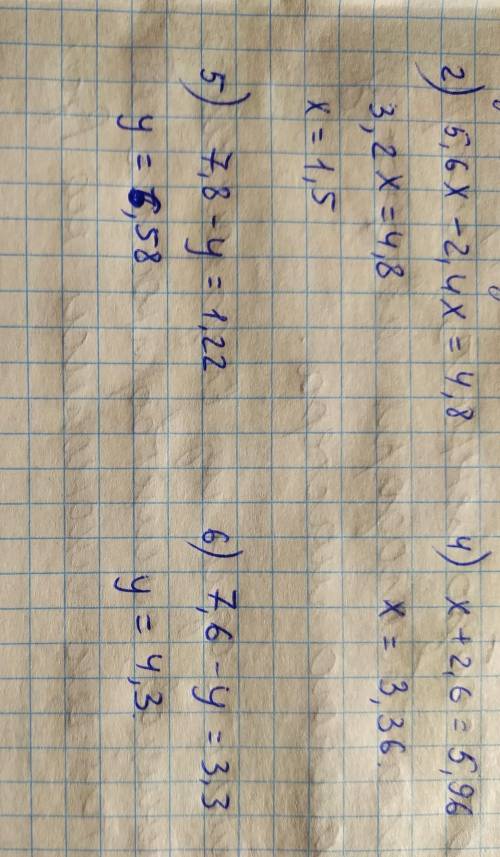 2) 5,6x - 2,4x = 4,8
3,2x = 4,8
x = 1,5
4) x + 2,6 = 5,96
x = 3,36.
5) 7,8 - y = 1,22
y = 6,58
6) 7,6 - y = 3,3
y = 4,3.